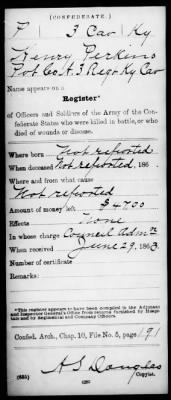 (CONFEDERATE.)
P 3 Cav Ky
Henry Perkins
Pvt Co. H. 3 Regt Ky Cav
Name appears on a
Register*
of Officers and Soldiers of the Army of the Con-
federate States who were killed in battle, or who
died of wounds or disease.
Where born Not reported
When deceased Not reported, 186 .
Where and from what cause
Not reported
Amount of money left $47.00
Effects None
In whose charge Council Admn
When received June 29, 1863
Number of certificate
Remarks:
*This register appears to have been compiled in the Adjutant
and Inspector General's Office from returns furnished by Hospi-
tals and by Regimental and Company Officers.
Confed. Arch., Chap. 10, File No. 5, page 191
A. S. Douglas
(635) Copyist.